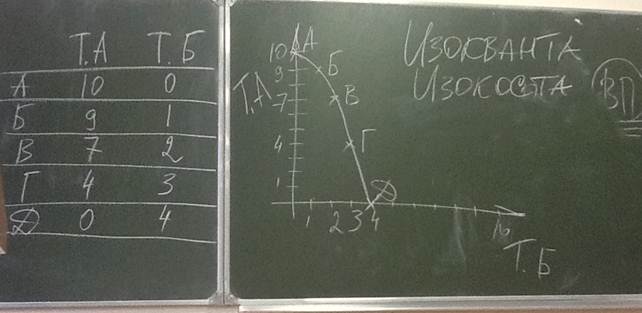 Т.А Т.Б
А 10 0
Б 9 1
В 7 2
Г 4 3
Д 0 4
ИЗОКВАНТА
ИЗОКОСТА
ВП
Т.А
10 А
9 Б
7 В
4 Г
1 Д
1 2 3 4
Т.Б